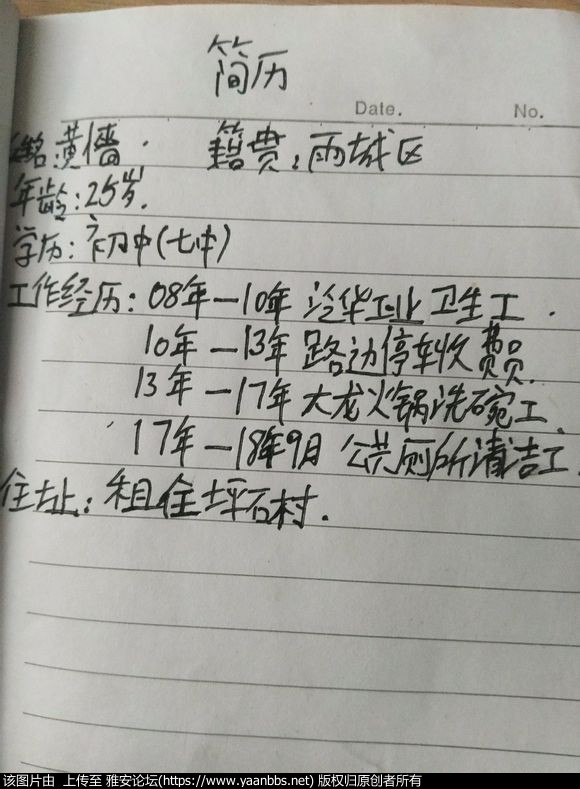 简历
Date. No.
姓名黄僐. 籍贯:雨城区
年龄:25岁.
学历:初中(七中)
工作经历:08年—10年 冶华工业卫生工.
10年—13年 路边停车收费员.
13年—17年 大龙火锅洗碗工.
17年—18年9月 公共厕所清洁工.
住址:租住坪石村.
该图片由 上传至 雅安论坛(https://www.yaanbbs.net) 版权归原创者所有